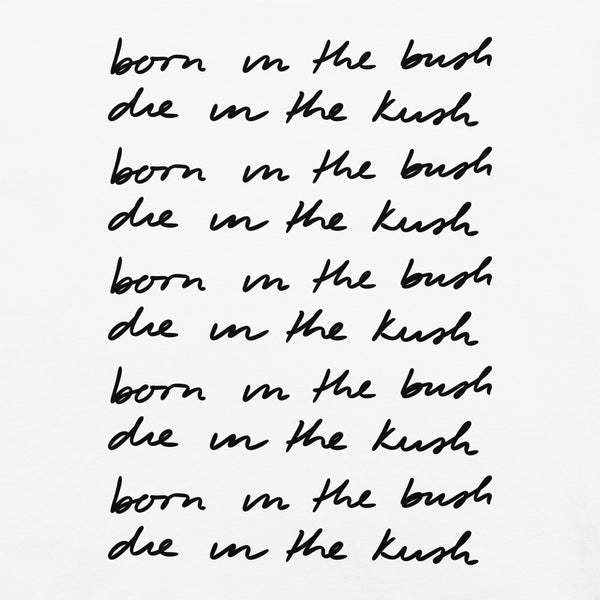 born in the bush
die in the kush
born in the bush
die in the kush
born in the bush
die in the kush
born in the bush
die in the kush
born in the bush
die in the kush